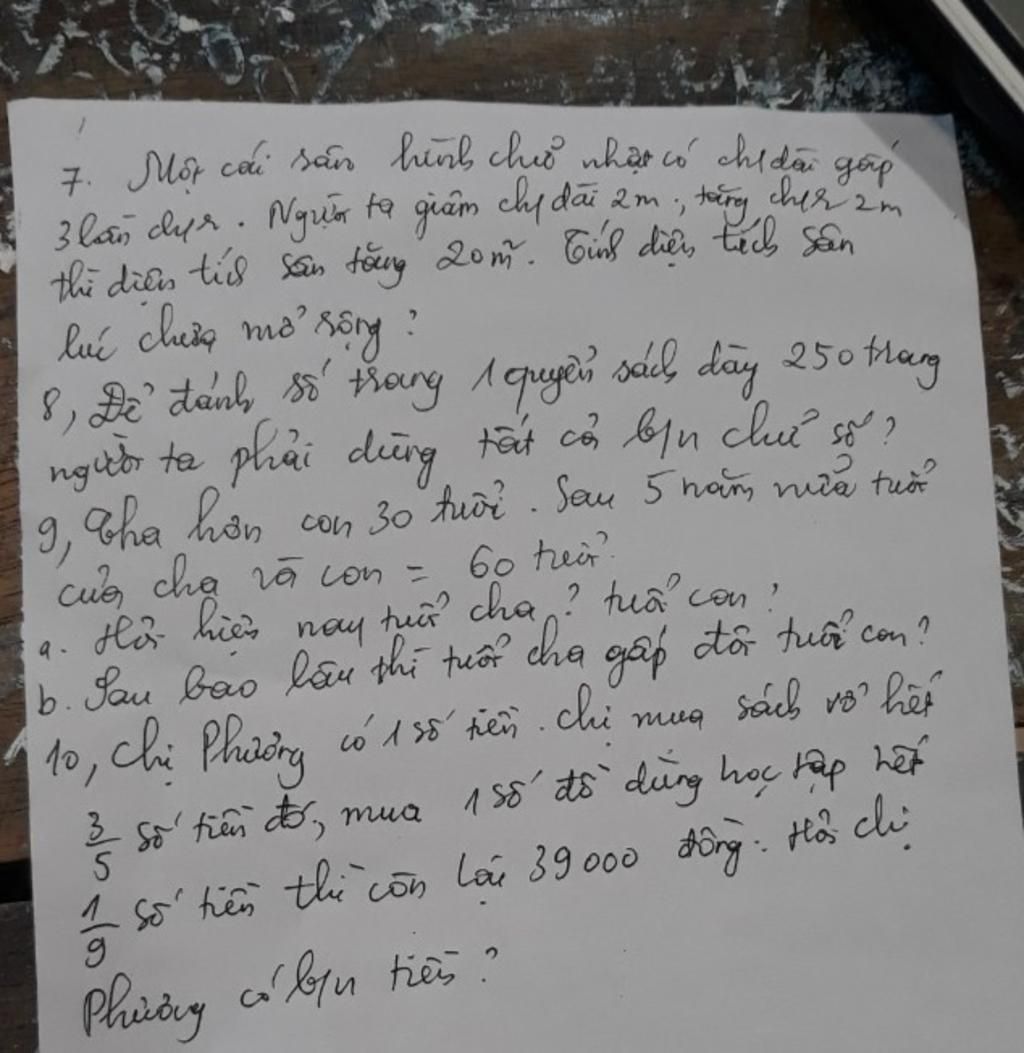 7. Một cái sân hình chữ nhật có ch/dài gấp
3 lần ch/r. Người ta giảm ch/dài 2m, tăng ch/r 2m
thì diện tích sân tăng 20m². Tính diện tích sân
lúc chưa mở rộng?
8, Để đánh số trang 1 quyển sách dày 250 trang
người ta phải dùng tất cả b/n chữ số?
9, Cha hơn con 30 tuổi. Sau 5 năm nữa tuổi
của cha và con = 60 tuổi.
a. Hỏi hiện nay tuổi cha? tuổi con?
b. Sau bao lâu thì tuổi cha gấp đôi tuổi con?
10, Chị Phương có 1 số tiền. Chị mua sách vở hết
3/5 số tiền đó, mua 1 số đồ dùng học tập hết
1/9 số tiền thì còn lại 39000 đồng. Hỏi chị
Phương có b/n tiền?